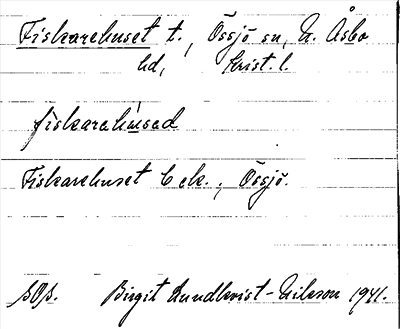 Fiskarehuset t., Össjö sn, N. Åsbo
hd, Krist. l.
fiskarehused
Fiskarehuset C ek., Össjö.
SOJ. Birgit Lundkvist-Nilsson 1941.